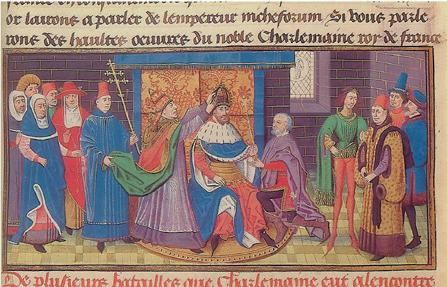 or lairons a parler de lempereur nicheforum Si vous parle
rons des haultes oeuvres du noble Charlemaine roy de france
De plusieurs batailles que Charlemaine eut alencontre